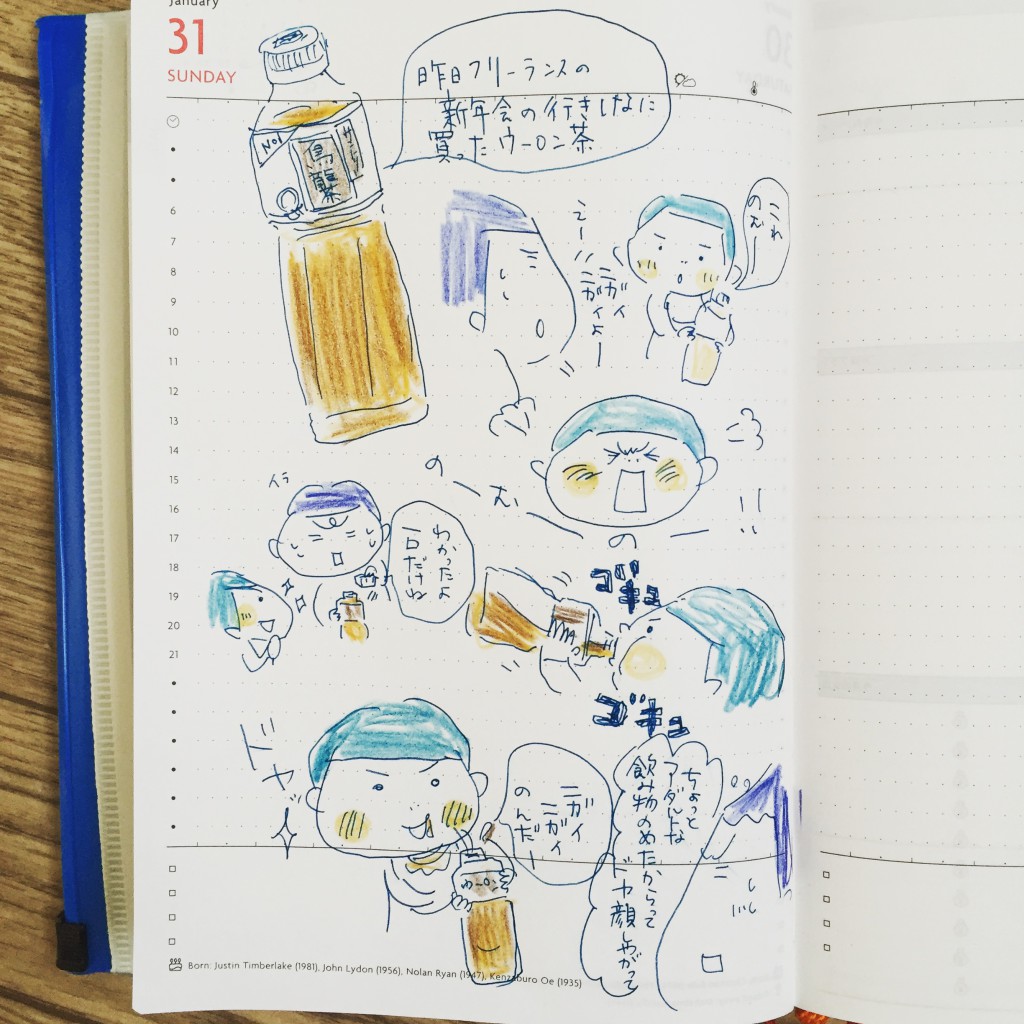 January
31
SUNDAY
昨日フリーランスの
新年会の行きしなに
買ったウーロン茶
No1
サントリー
烏龍茶
6
7
8
9
10
11
12
13
14
15
16
17
18
19
20
21
これ
のむー
えー
ニガイ
ニガイよー
のーむ
!!
の
イラ
わかったよ
一口だけね
ゴキュ
ゴキュ
ドヤ
ニガイ
ニガイ
のんだー
ウーロン
ちょっと
アダルトな
飲み物のめたからって
ドヤ顔しやがって
Born: Justin Timberlake (1981), John Lydon (1956), Nolan Ryan (1947), Kenzaburo Oe (1935)